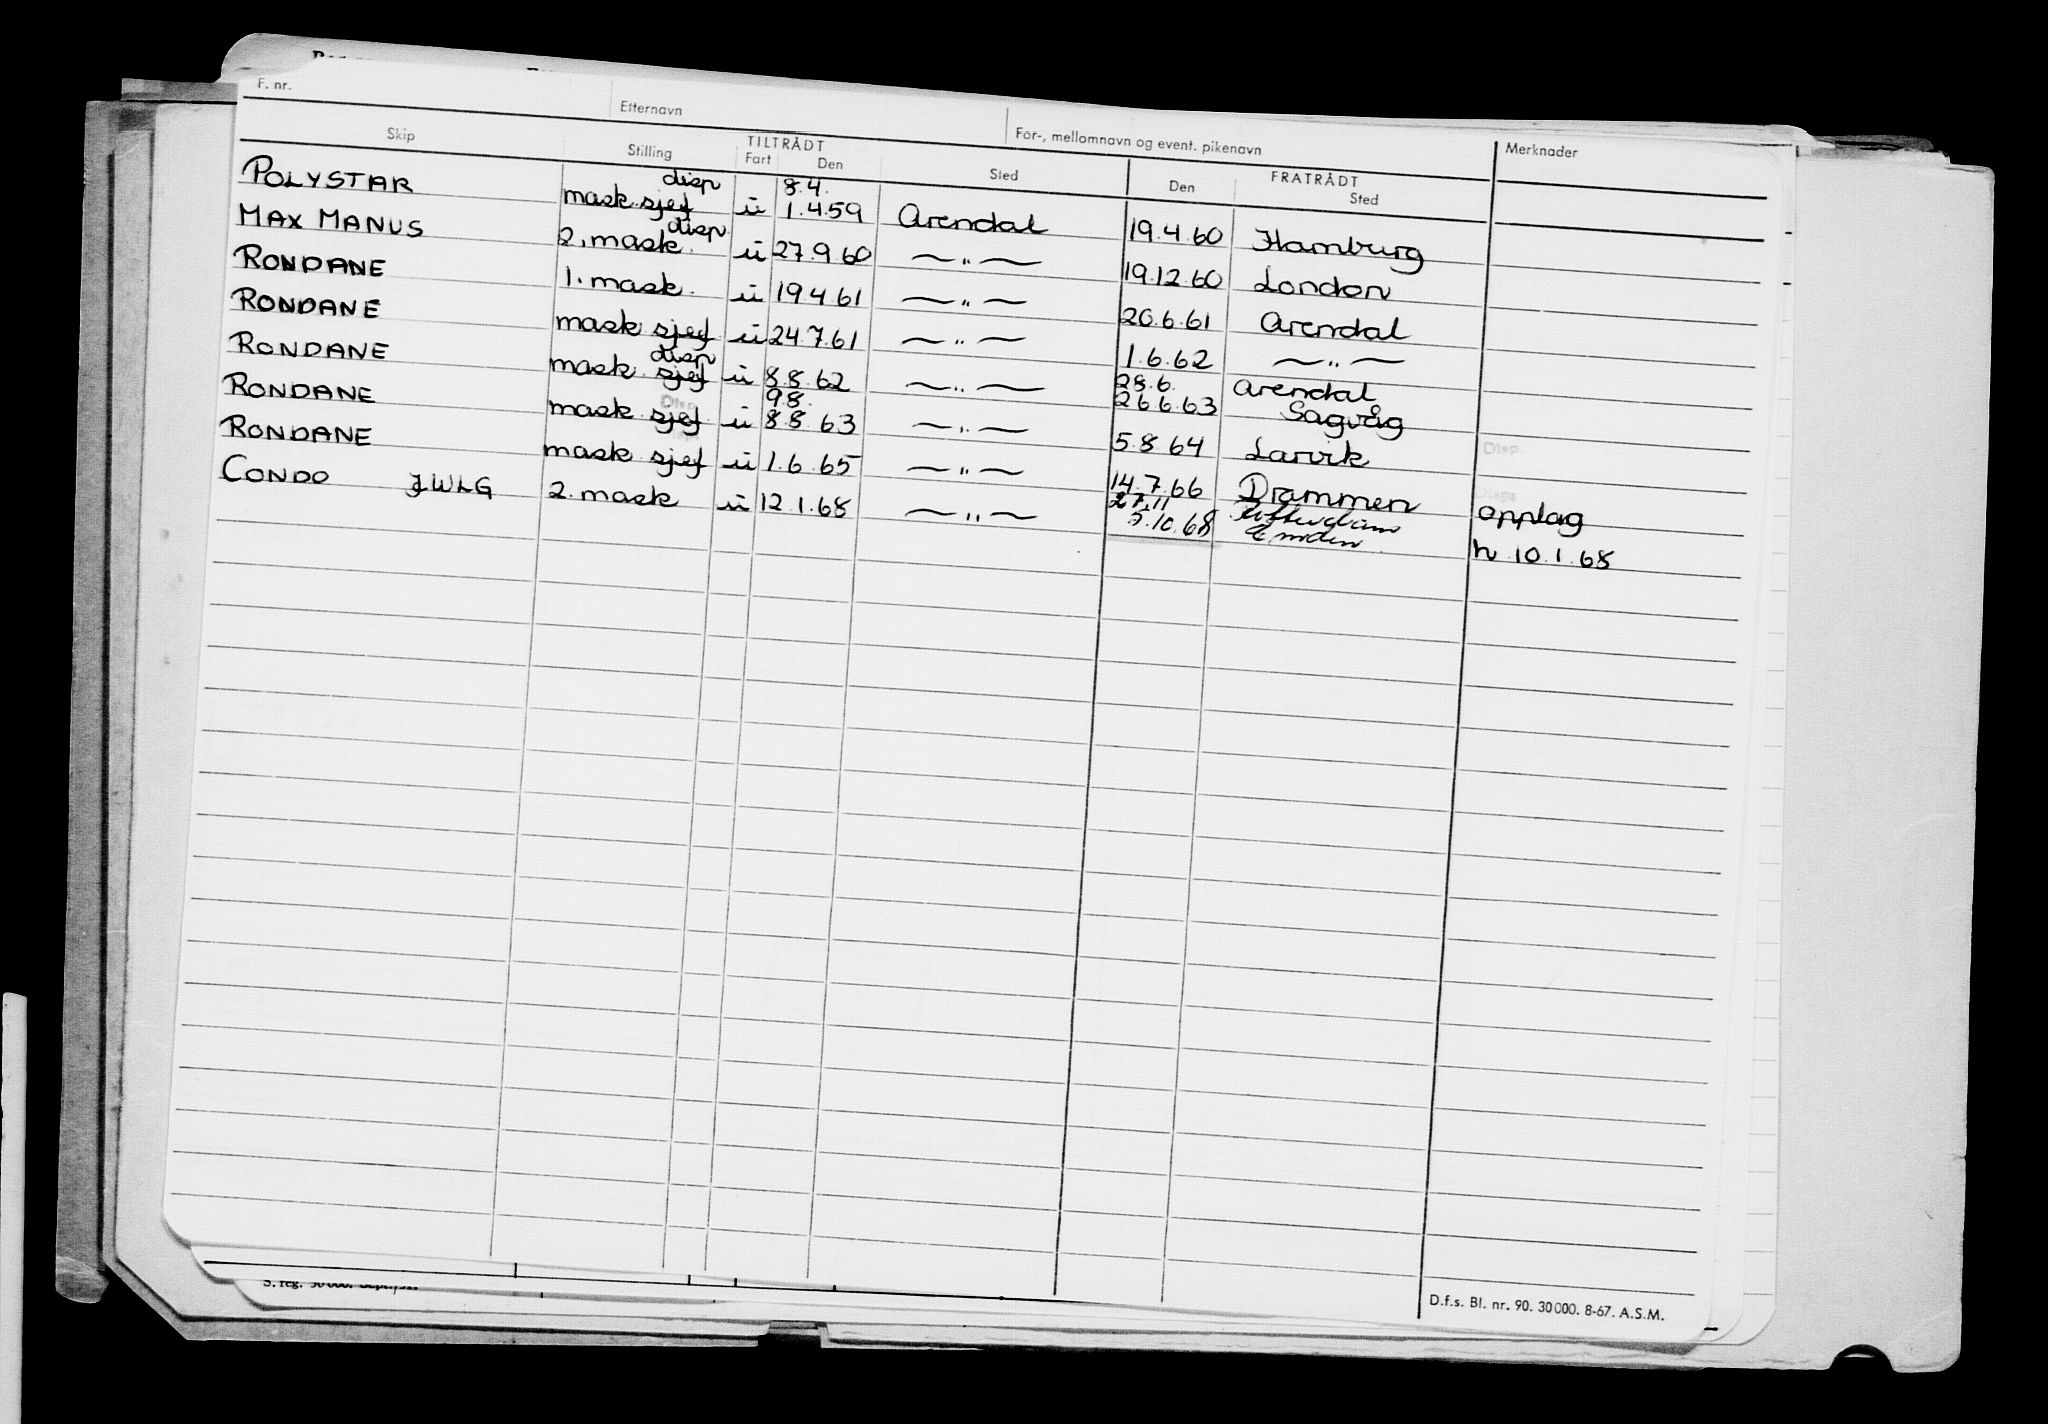 F. nr. Etternavn For-, mellomnavn og event. pikenavn
Skip Stilling TILTRÅDT Fart Den Sted FRATRÅDT Den Sted Merknader
POLYSTAR mask. sjef disp u 8.4. 1.4.59 Arendal 19.4.60 Hamburg
MAX MANUS 2. mask. disp u 27.9.60 — " — 19.12.60 London
RONDANE 1. mask. u 19.4.61 — " — 20.6.61 Arendal
RONDANE mask sjef u 24.7.61 — " — 1.6.62 — " —
RONDANE mask. sjef disp u 8.8.62 — " — 28.6. 26.6.63 Arendal Sagvåg
RONDANE mask sjef Disp. u 9.8. 8.8.63 — " — 5.8.64 Larvik Disp.
RONDANE mask sjef u 1.6.65 — " — 14.7.66 Drammen opplag
CONDO JWLG 2. mask u 12.1.68 — " — 27.11 5.10.68 Rotterdam Emden h 10.1.68
S. reg. 50 000. Sept.
D.f.s. Bl. nr. 90. 30 000. 8-67. A.S.M.